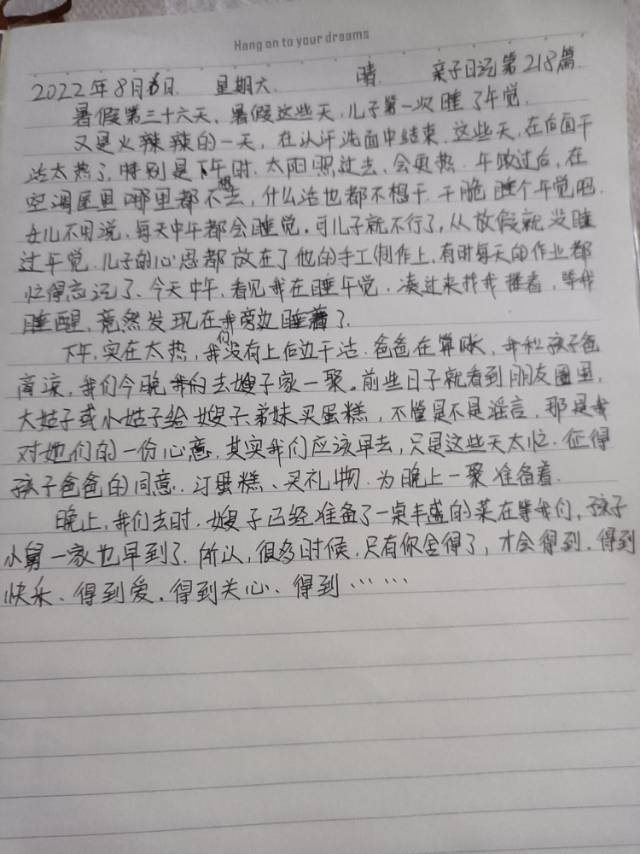 Hang on to your dreams
2022年8月6日 星期六 晴 亲子日记第218篇.
暑假第三十六天，暑假这些天，儿子第一次睡了午觉.
又是火辣辣的一天，在以汗洗面中结束.这些天，在后面干
活太热了，特别是下午时.太阳照过去，会更热.午饭过后，在
空调屋里哪里都不想去，什么活也都不想干.干脆睡个午觉吧.
女儿不用说，每天中午都会睡觉，可儿子就不行了，从放假就没睡
过午觉.儿子的心思都放在了他的手工制作上，有时每天的作业都
忙得忘记了.今天中午，看见我在睡午觉.凑过来找我挨着，等我
睡醒，竟然发现在我旁边睡着了.
下午，实在太热，我们没有上后边干活.爸爸在算账，我和孩子爸
商量，我们今晚我们去嫂子家一聚。前些日子就看到朋友圈里，
大姑子或小姑子给嫂子、弟妹买蛋糕，不管是不是谣言，那是我
对她们的一份心意.其实我们应该早去，只是这些天太忙.征得
孩子爸爸的同意.订蛋糕、买礼物.为晚上一聚准备着.
晚上，我们去时.嫂子已经准备了一桌丰盛的菜在等我们，孩子
小舅一家也早到了.所以，很多时候，只有你舍得了，才会得到.得到
快乐、得到爱、得到关心、得到……